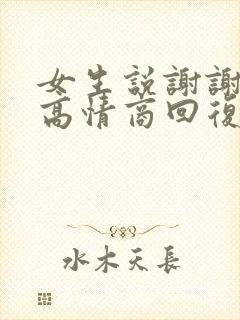 女生説謝謝
高情商回復
水木天長